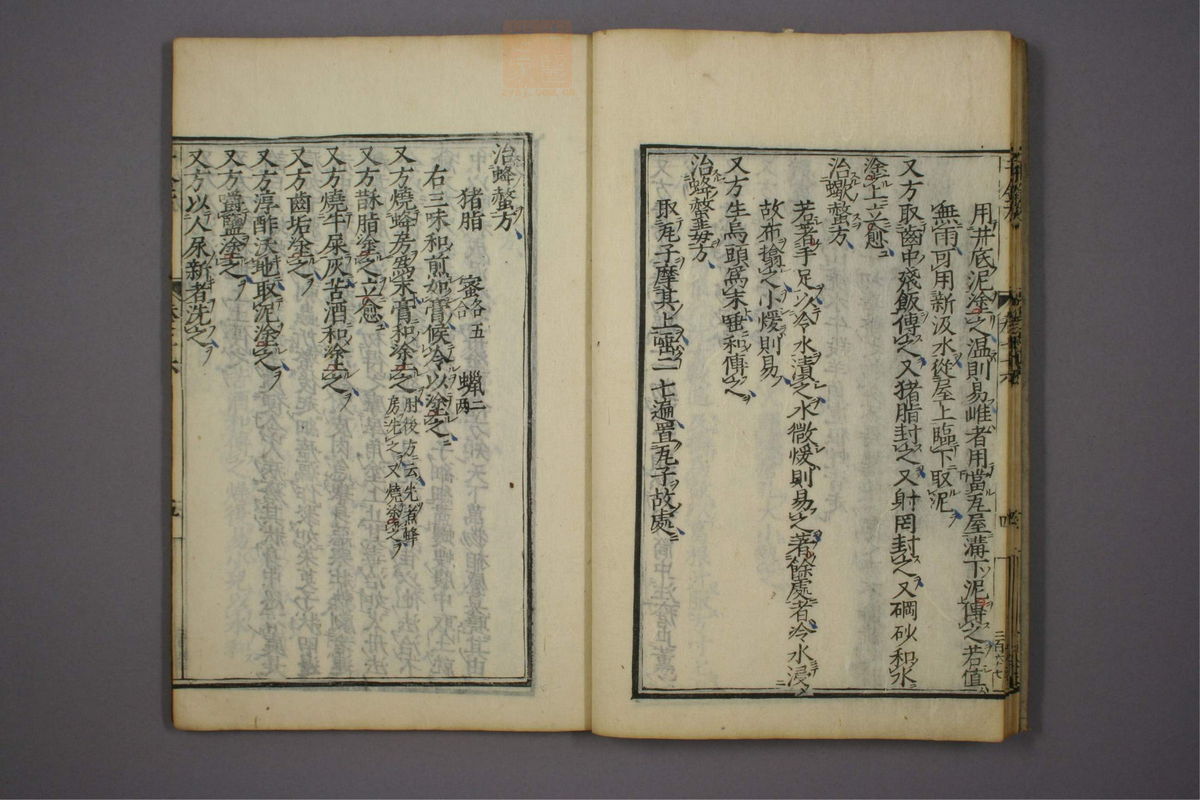 用井底泥塗之温則易雌者用當瓦屋溝下泥傅之若值
無雨可用新汲水從屋上臨下取泥
又方取齒中殘飯傅之又猪脂封之又射罔封之又硇砂和水
塗上立愈
治蠍螫方
若著手足以冷水漬之水微煖則易之著餘處者冷水浸
故布搨之小煖則易
又方生烏頭爲末唾和傅之
治蜂螫方
取瓦子摩其上唾二七遍置瓦子故處
三百六七
治蜂螫方
猪脂 蜜各五合 蠟二兩
右三味和煎如膏候冷以塗之
又方燒蜂房爲末膏和塗之肘後方云先煮蜂房洗之又燒塗之
又方酥脂塗之立愈
又方燒牛屎灰苦酒和塗之
又方齒垢塗之
又方淳酢沃地取泥塗之
又方嚼鹽塗之
又方以人尿新者洗之
五